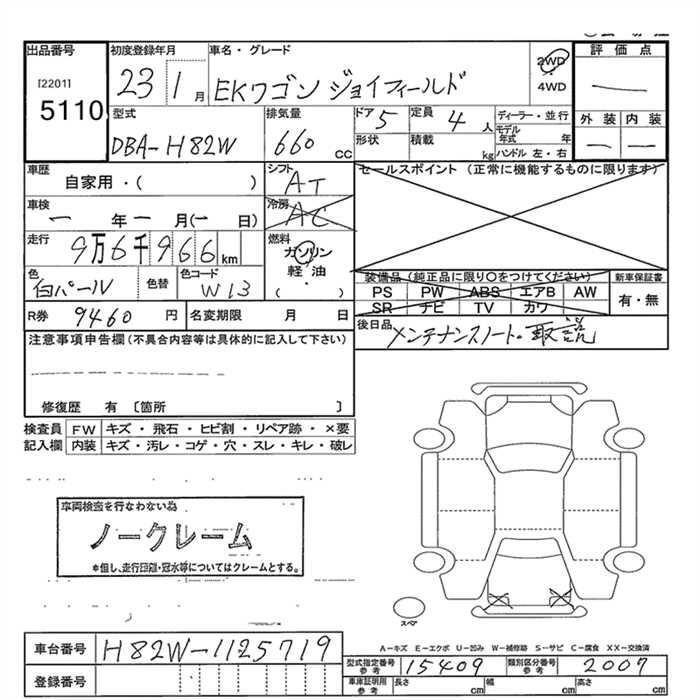 出品番号 初度登録年月 車名・グレード 評価点
[2201] 5110 23 1月 EKワゴン ジョイフィールド 2WD 4WD
型式 DBA-H82W 排気量 660 cc ドア 5 定員 4人 ディーラー・並行 外装 内装
形状 積載 kg モデル年式 年 ハンドル 左・右
車歴 自家用・( ) シフト AT セールスポイント (正常に機能するものに限ります)
車検 一年一月(一日) 冷房 AC
走行 9万6千966km 燃料 ガソリン 軽油 ( ・ )
装備品(純正品に限り○をつけてください) 新車保証書
色 白パール 色替 色コード W13 PS PW ABS エアB AW 有・無
SR ナビ TV カワ
R券 9460円 名変期限 月 日 後日品 メンテナンスノート・取説
注意事項申告欄(不具合内容等は具体的に記入して下さい)
修復歴 有 〔箇所 〕
検査員 FW キズ・飛石・ヒビ割・リペア跡・×要
記入欄 内装 キズ・汚レ・コゲ・穴・スレ・キレ・破レ
車両検査を行なわない為
ノークレーム
*但し、走行距離・冠水等についてはクレームとする。
スペア
A-キズ E-エクボ U-凹み W-補修跡 S-サビ C-腐食 XX-交換済
車台番号 H82W-1125719
型式指定番号 参考 15409 類別区分番号 参考 2007
登録番号 車庫証明用 参考 長さ cm 幅 cm 高さ cm